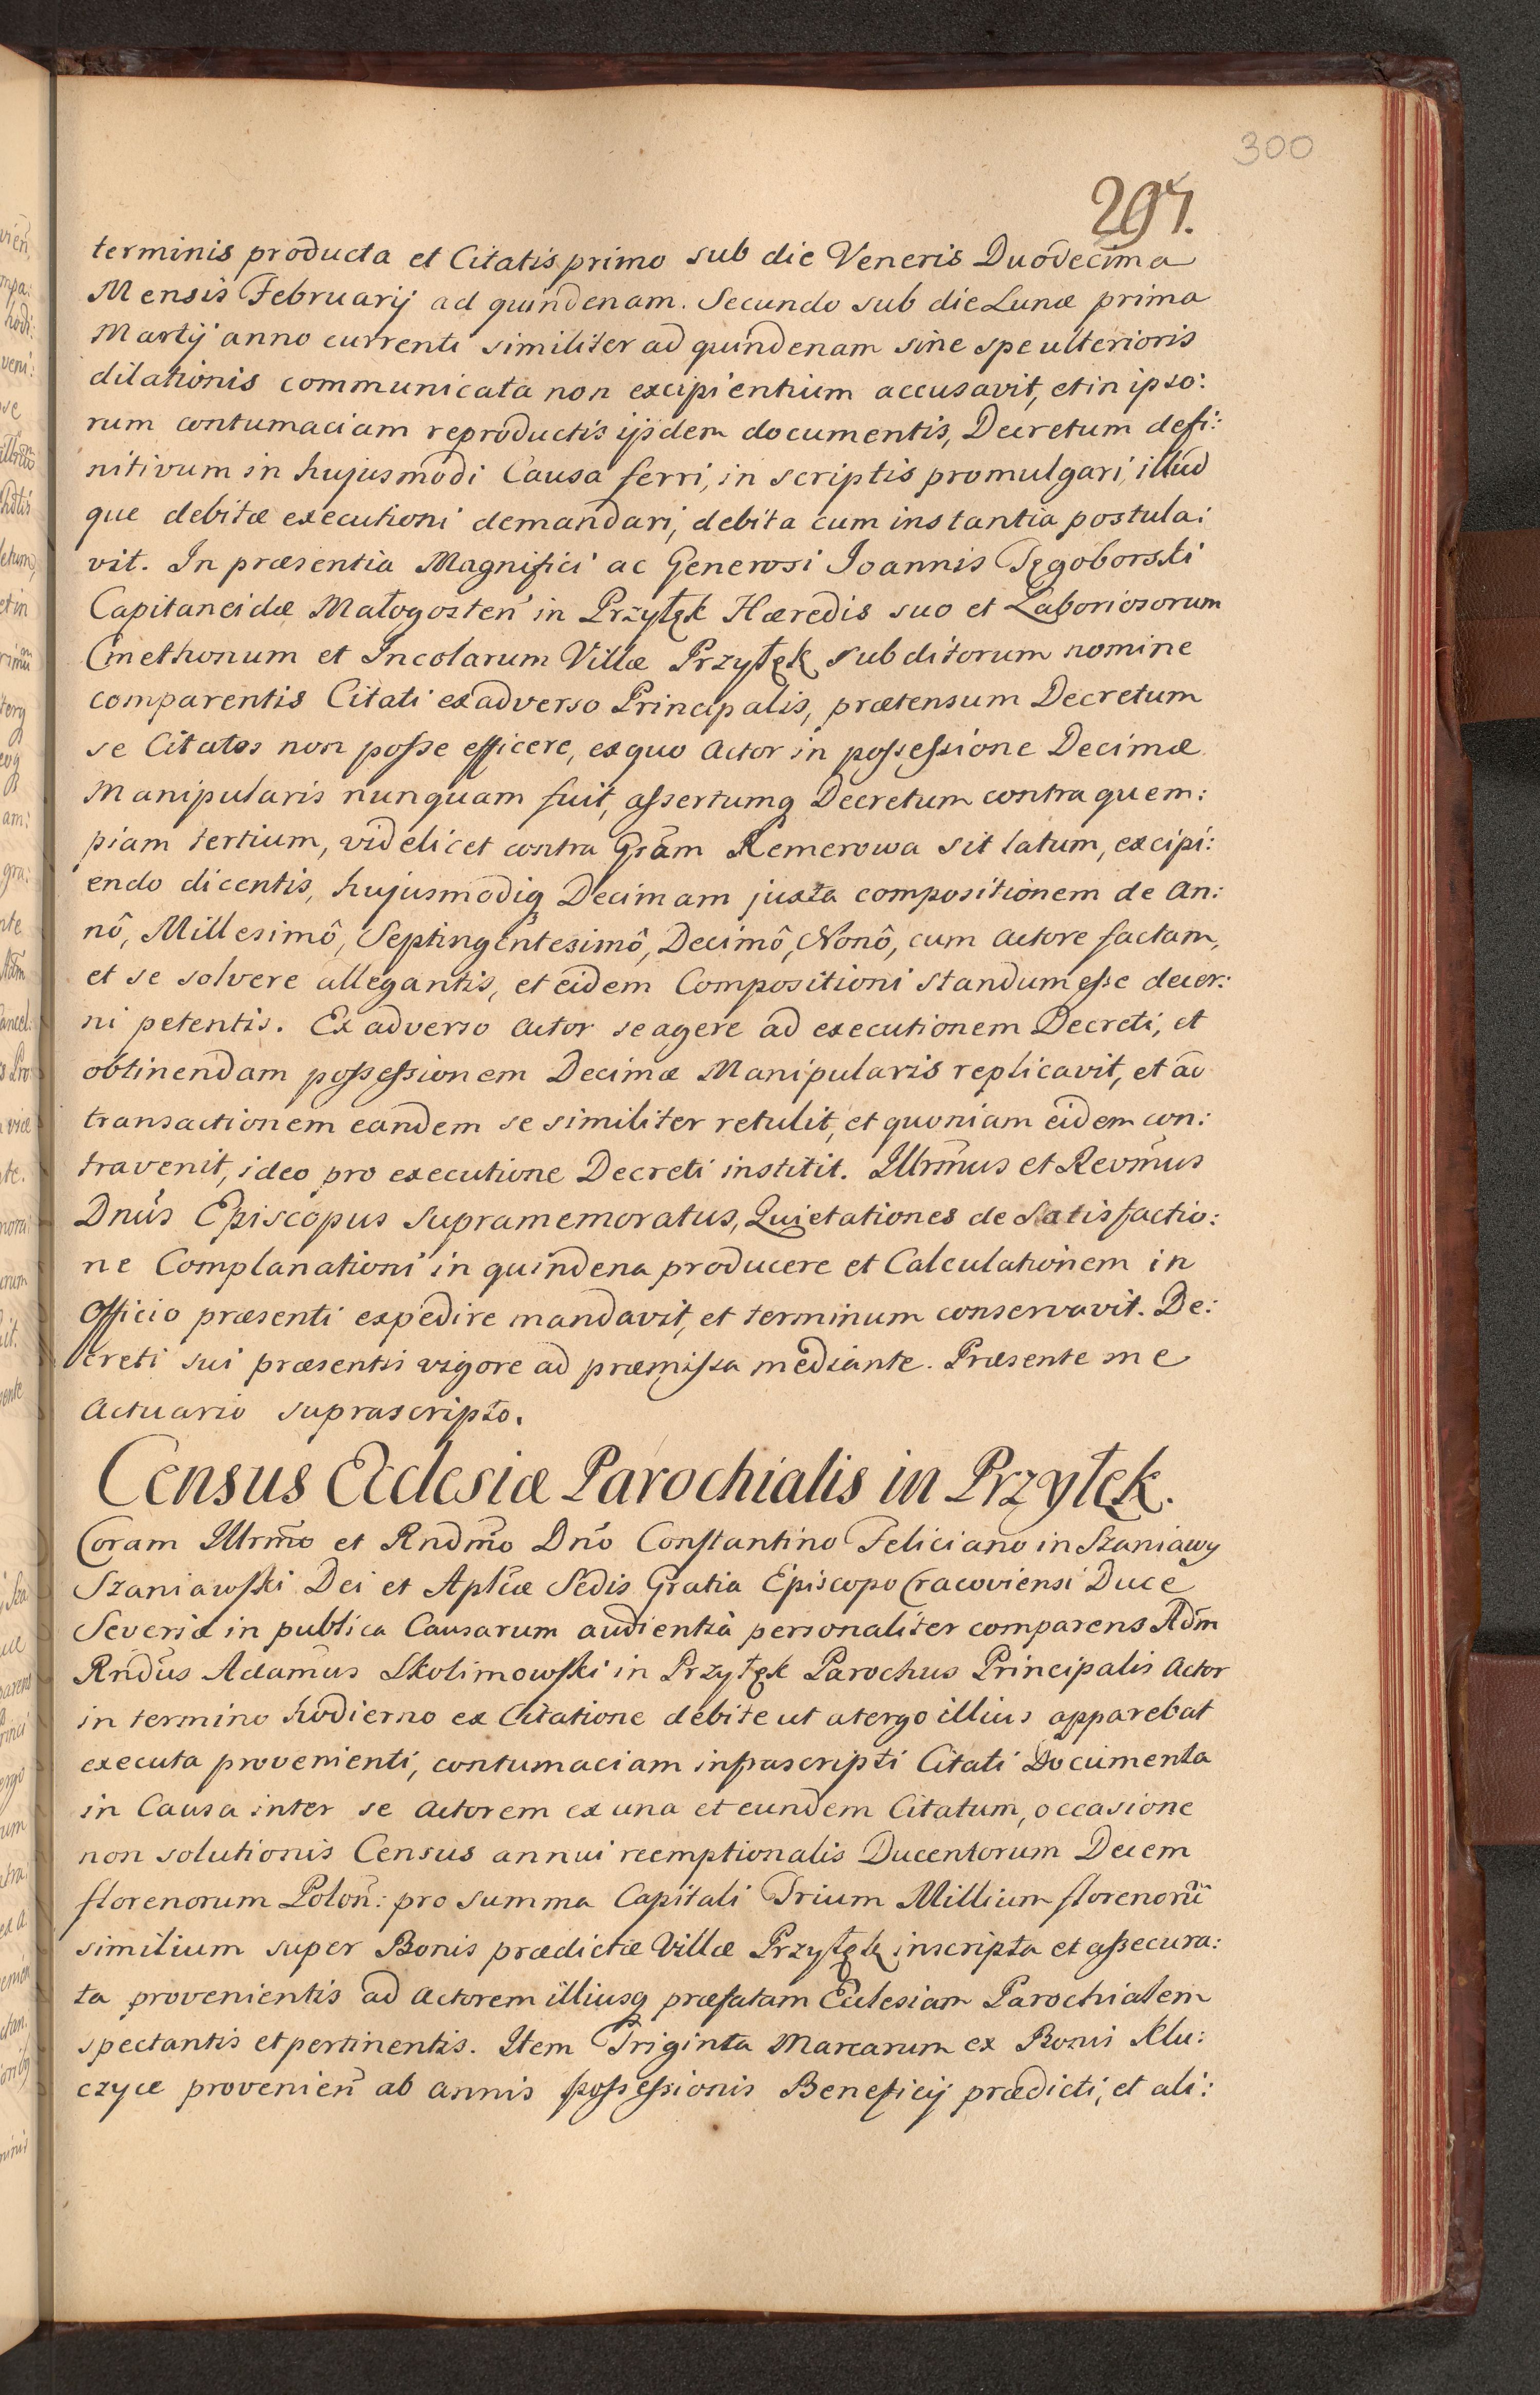 300
297.
terminis producta et Citatis primo sub die Veneris Duodecima
Mensis Februarij ad quindenam. Secundo sub die Lunæ prima
Martij anno currenti similiter ad quindenam sine spe ulterioris
dilationis communicata non excipientium accusavit, et in ipso:
rum contumaciam reproductis ijsdem documentis, Decretum defi:
nitivum in hujusmodi Causa ferri, in scriptis promulgari, illud
que debitæ executioni demandari, debita cum instantia postula:
vit. In præsentia Magnifici ac Generosi Joannis Tęgoborski
Capitaneidæ Małogosten̄ in Przyłęk Hæredis suo et Laboriosorum
Cmethonum et Incolarum Villæ Przyłęk subditorum nomine
comparentis Citati ex adverso Principalis, prætensum Decretum
se Citatos non posse efficere, ex quo Actor in possessione Decimæ
Manipularis nunquam fuit, assertumq Decretum contra quem:
piam tertium, videlicet contra Gsam Remerowa sit latum, excipi:
endo dicentis, hujusmodiq Decimam juxta compositionem de An:
nô, Millesimô, Septingentesimô, Decimô, Nonô, cum Actore factam,
et se solvere allegantis, et eidem Compositioni standum esse decer:
ni petentis. Ex adverso Actor se agere ad executionem Decreti, et
obtinendam possessionem Decimæ Manipularis replicavit, et ad
transactionem eandem se similiter retulit, et quoniam eidem con:
travenit, ideo pro executione Decreti institit. Illrm̄us et Revm̄us
Dnūs Episcopus supramemoratus, Quietationes de Satisfactio:
ne Complanationi in quindena producere et Calculationem in
Officio præsenti expedire mandavit, et terminum conservavit. De:
creti sui præsentis vigore ad præmissa mediante. Præsente me
Actuario suprascripto.
Census Ecclesiæ Parochialis in Przyłęk.
Coram Illrm̄o et Rndm̄o Dn̄o Constantino Feliciano in Szaniawy
Szaniawski Dei et Aplicæ Sedis Gratia Episcopo Cracoviensi Duce
Severiæ in publica Causarum audientia personaliter comparens Adm̄
Rndūs Adamus Skolimowski in Przyłęk Parochus Principalis Actor
in termino hodierno ex Citatione debite ut a tergo illius apparebat
executa provenienti, contumaciam infrascripti Citati Documenta
in Causa inter se Actorem ex una et eundem Citatum, occasione
non solutionis Census annui reemptionalis Ducentorum Decem
florenorum Polon̄: pro summa Capitali Trium Millium florenorū
similium super Bonis prædictæ Villæ Przyłęk inscripta et assecura:
ta provenientis ad Actorem illiusq præfatam Ecclesiam Parochialem
spectantis et pertinentis. Item Triginta Marcarum ex Bonis Klu:
czyce provenien̄ ab annis possessionis Beneficij prædicti, et ali: